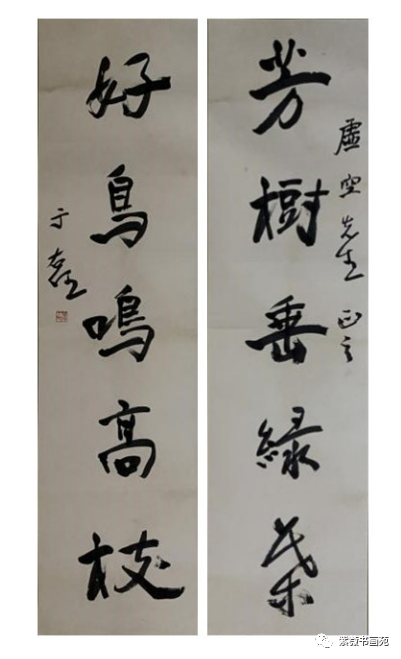 虛空先生 正之
芳樹垂綠葉
好鳥鳴高枝
于右任
紫薇书画苑